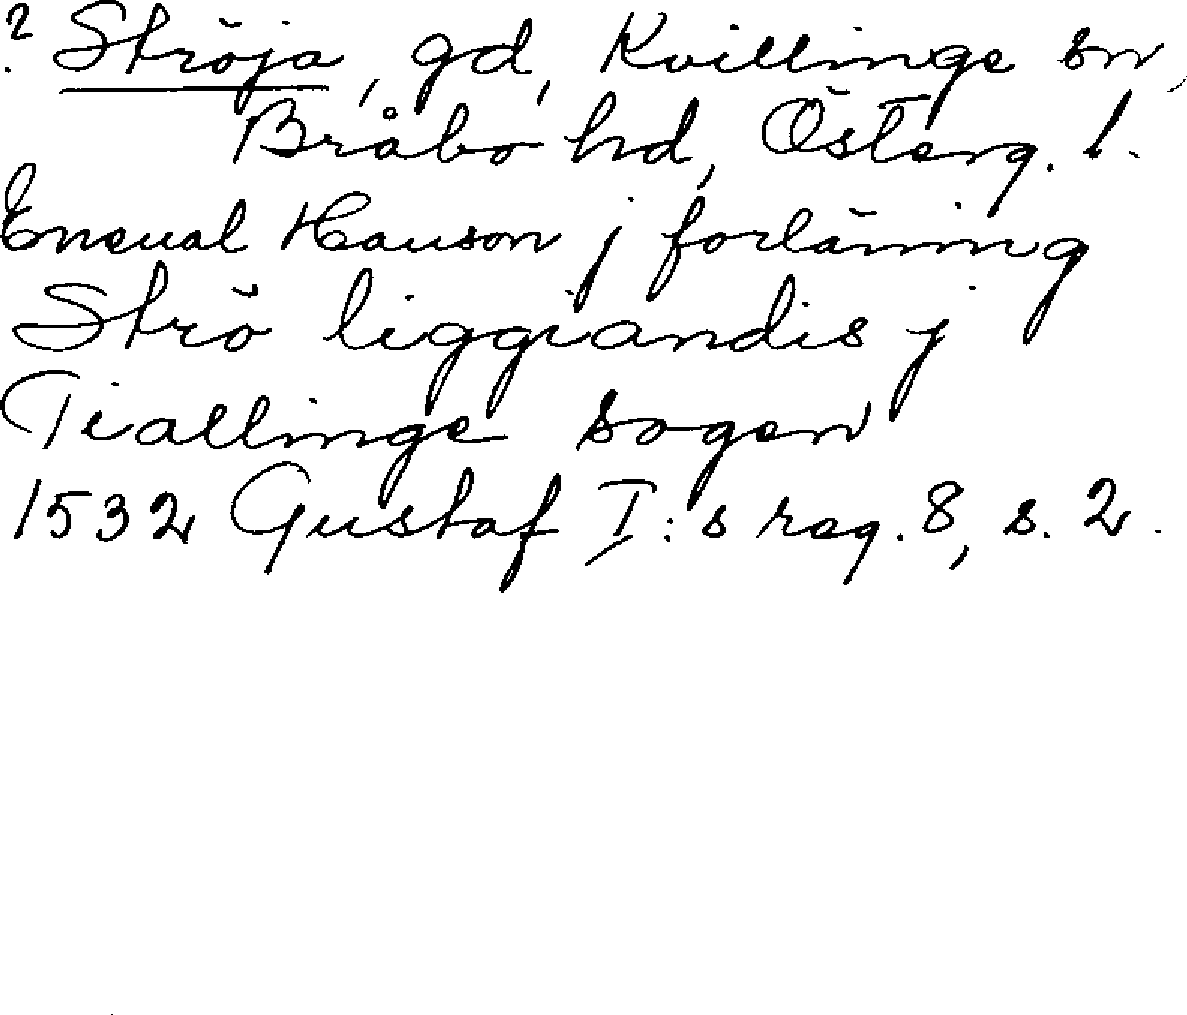 ? Ströja, gd, Kvillinge sn,
Bråbo hd, Österg. l.
Eneual Hauson j forläning
Strö liggiandis j
Tiallinge sogen
1532 Gustaf I:s reg. 8, s. 2.